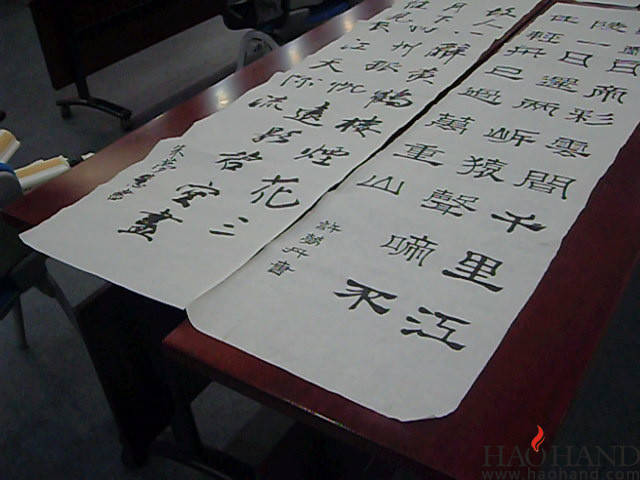 故人西辭黃鶴樓煙花三
月下揚州孤帆遠影碧空盡
見長江天際流
白帝彩雲間千里江
陵一日還兩岸猿聲啼不
住輕舟已過萬重山
許夢丹書
HAOHAND
www.haohand.com